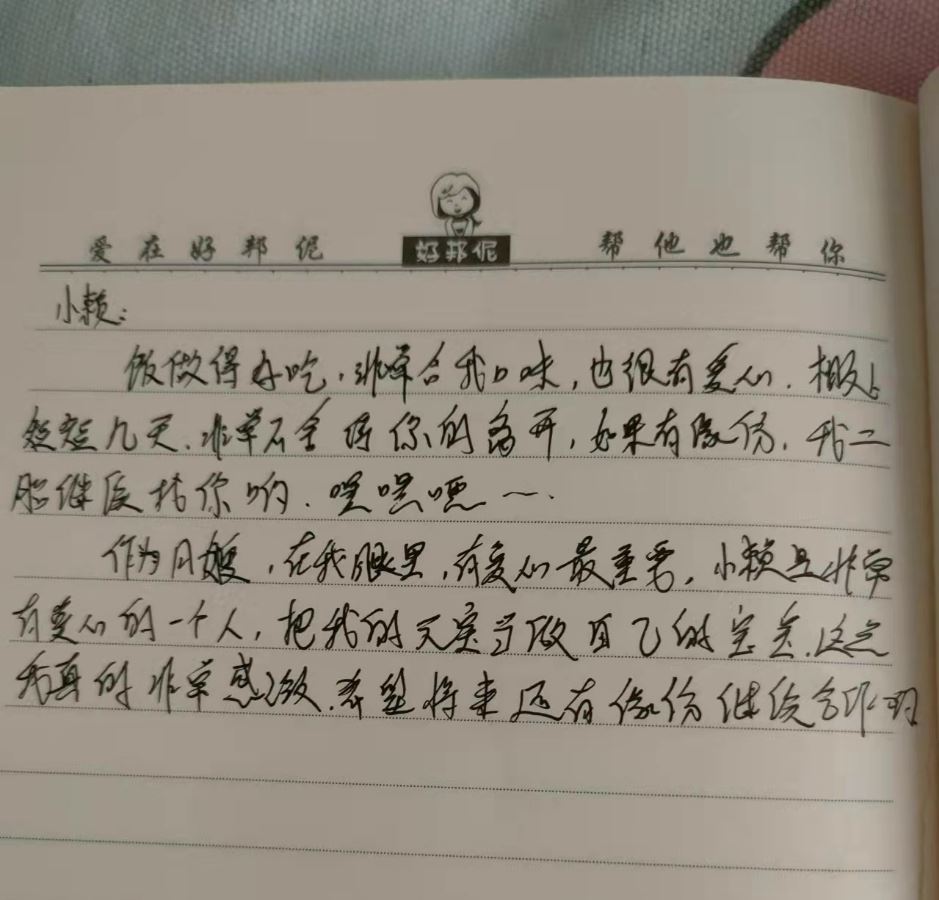 爱在好邦伲
好邦伲
帮他也帮你
小赖：
饭做得好吃，非常合我口味，也很有爱心．相处
短短几天．非常不舍得你的离开，如果有缘份．我二
胎继续找你哟．嘿嘿嘿～．
作为月嫂，在我眼里，有爱心最重要，小赖是非常
有爱心的一个人，把我的元宝当做自己的宝宝．这点
我真的非常感激．希望将来还有缘份继续合作